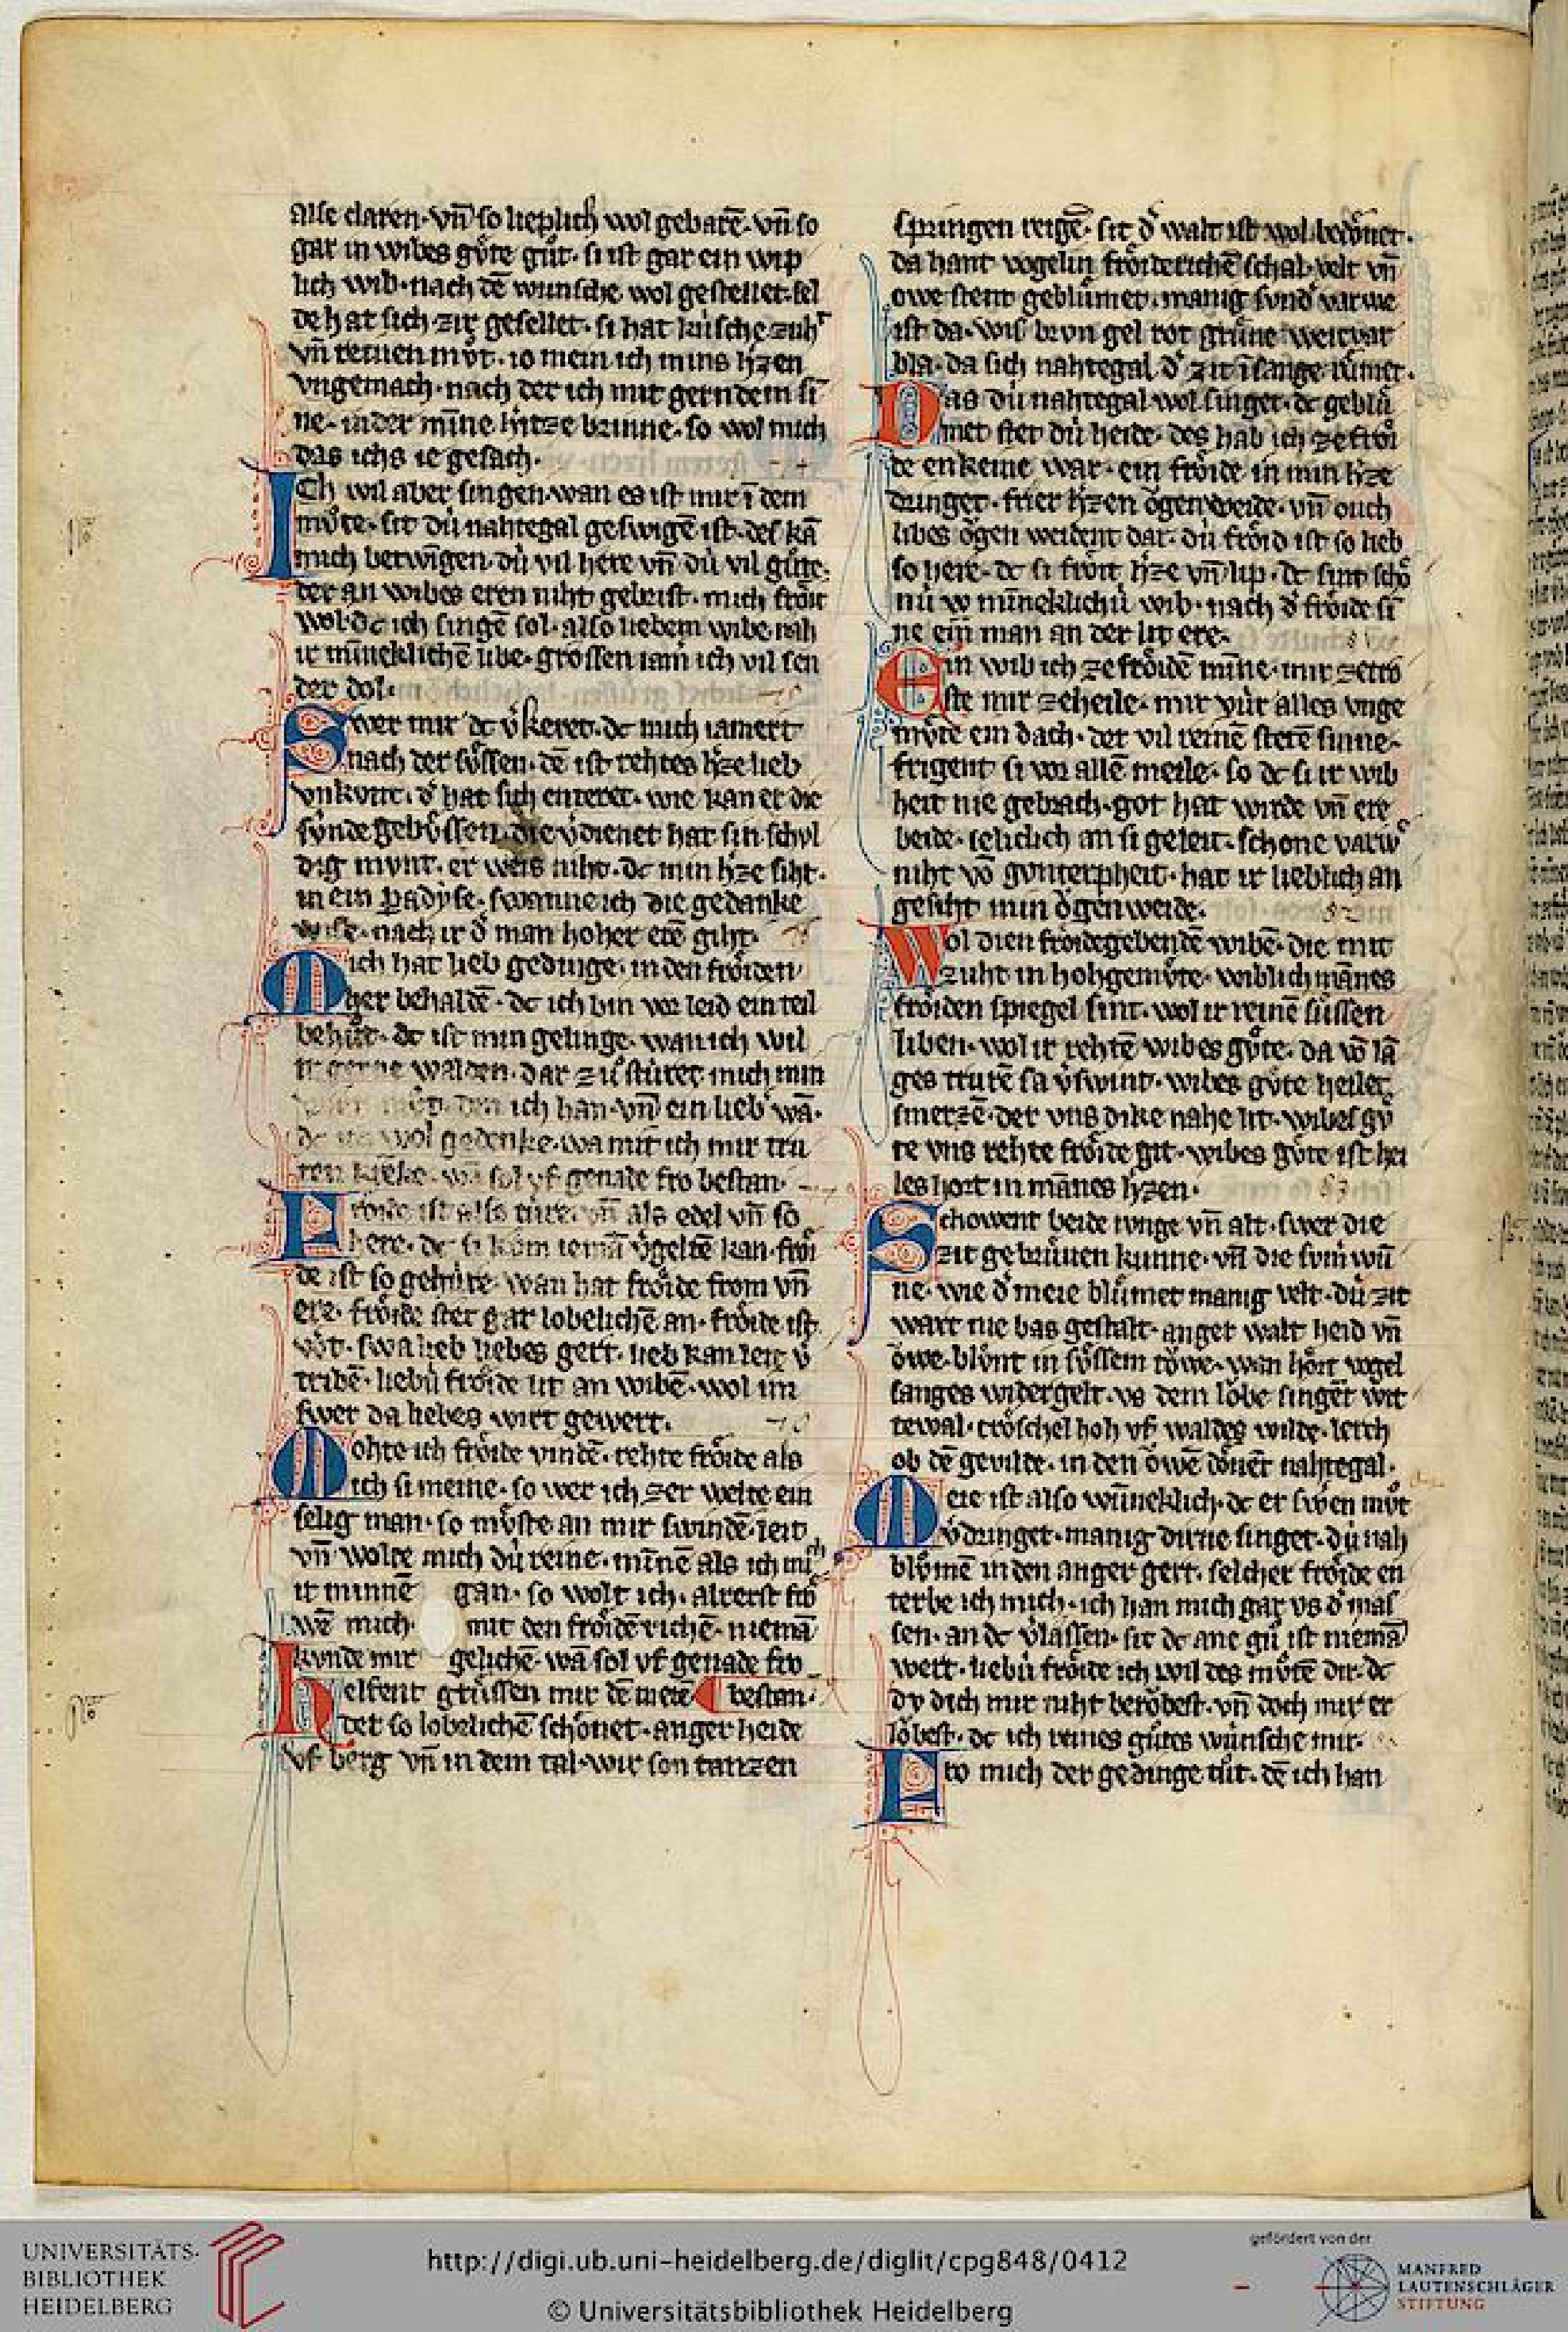 alse claren·vn̄ so lieplich wol gebarē·vn̄ so
gar in wibes guͤte guͦt· si ist gar ein wip
lich wib·nach dē wunsche wol gestellet·sel
de hat sich zir gesellet·si hat kúsche zuht
vn̄ reinen muͦt·io mein ich mins h̾zen
vngemach·nach der ich mit gerndem si
ne·in der mīne hitze brinne·so wol mich
das ichs ie gesach·
Ich wil aber singen·wan es ist mir ī dem
muͦte·sit dú nahtegal geswigē ist·des kā
mich betwīgen·dú vil here vn̄ dú vil guͦte·
der an wibes eren niht gebrist·mich froͤit
wol·dc ich singē sol·also liebem wibe·nah
ir mīneklichē libe·grossen iam̾ ich vil sen
der dol·
Swer mir dc v̾keret·dc mich iamert
nach der suͤssen·dē ist rehtes h̾ze lieb
vnkunt·d̾ hat sich enteret·wie kan er die
súnde gebuͤssen·die v̾dienet hat sin schul
dig munt·er weis niht·dc min h̾ze siht·
in ein ꝑadyse·swanne ich die gedanke
wise·nach ir d̾ man hoher erē giht·
Mich hat lieb gedinge·in den froͤiden
her behaldē·dc ich bin vor leid ein teil
behuͤt·dc ist min gelinge·wan ich wil
ir gerne walden·dar zuͦ stúret mich min
muͦt·den ich han·vn̄ ein lieb̾ wā·
dc ich wol gedenke·wa mit ich mir tru
ren krēke·wā sol vf genade fro bestan·
Froͤide ist alse túre·vn̄ als edel vn̄ so
here·dc si kum iemā v̾geltē kan·froͤi
de ist so gehúre·wan hat froͤide from vn̄
ere·froͤide stet gar lobelichē an·froͤide ist
guͦt·swa lieb liebes gert·lieb kan leit v̾
tribē·liebú froͤide lit an wibē·wol im
swer da liebes wirt gewert·
Mohte ich froͤide vindē·rehte froͤide als
ich si meine·so wer ich zer welte ein
selig man·so muͤste an mir swindē·leit
vn̄ wolte mich dú reine·mīnē als ich mich
ir minnē gan·so wolt ich·alrerst froͤ
wē mich· mit den froͤidē richē·niemā
kunde mir gelichē·wā sol vf genade fro
bestan·
Helfent grússen mir dē meiē
der so lobelichē schoͤnet·anger heide
vf berg vn̄ in dem tal·wir son tanzen
springen reigē·sit d̾ walt ist wol bedoͤnet·
da hant vogelin froͤiderichē schal·velt vn̄
owe stent gebluͤmet·manig sund̾ varwe
ist da·wis brun gel rot gruͤne weitvar
bla·da sich nahtegal d̾ zit ī sange ruͤmet·
Das dú nahtegal wol singet·dc gebluͤ
met stet dú heide·des hab ich ze froͤi
de enkeine war·ein froͤide in min h̾ze
dringet·frier h̾zen oͮgen weide·vn̄ ouch
libes oͮgen weident dar·dú froͤid ist so lieb
so here·dc si froͤit h̾ze vn̄ lip·dc sint schoͤ
nú w mīneklichú wib·nach d̾ froͤide si
ne ein man an der lit ere·
Ein wib ich ze froͤidē mīne·mir ze tro
ste mir ze heile·mir vúr alles vnge
muͤte ein dach·der vil reinē sterē sinne·
frigent si vor allē meile·so dc si ir wib
heit nie gebrach·got hat wirde vn̄ ere
beide·ieliclich an si geleit·schone varw
niht vō gunterpheit·hat ir lieblich an
gesiht min oͮgen weide·
Wol dien froͤidegebendē wibē·die mit
zuht in hohgemuͤte·wiblich mānes
froͤiden spiegel sint·wol ir reinē suͤssen
liben·wol ir rehtē wibes guͤte·da vō lā
ges trurē sa v̾swint·wibes guͤte heilet
smerzē·der vns dike nahe lit·wibes guͤ
te vns rehte froͤide git·wibes guͤte ist hei
les hort in mānes h̾zen·
Schowent beide iunge vn̄ alt·swer die
zit gebrúuen kunne·vn̄ die sum̾ wū
ne·wie d̾ meie bluͤmet manig velt·dú zit
wart nie bas gestalt·anger walt heid vn̄
owe·bluͤnt in suͤssem towe·man hoͤrt vogel
sanges widergelt·vs dem loͮbe singēt wit
tewal·troͤschel hoh vf waldes wilde·lerch
ob dē gevilde·in den oͮwē doͤnēt nahtegal·
Meie ist also wūneklich·dc er swͤren muͦt
v̾dringet·manig dirne singet·dú nah
bluͦmē in den anger gert·selcher froͤide en
terbe ich mich·ich han mich gar vs d̾ mas
sen·an dc v̾lassen·sit dc ane guͦt ist niemā
wert·liebú froͤide ich wil des muͦtē dir·dc
dv dich mir niht beroͮbest·vn̄ doch mir er
loͮbest·dc ich reines guͦtes wúnsche mir·
Fro mich der gedinge tuͦt·dē ich han
UNIVERSITÄTS-
BIBLIOTHEK
HEIDELBERG
http://digi.ub.uni-heidelberg.de/diglit/cpg848/0412
© Universitätsbibliothek Heidelberg
gefördert von der
MANFRED
LAUTENSCHLÄGER
STIFTUNG